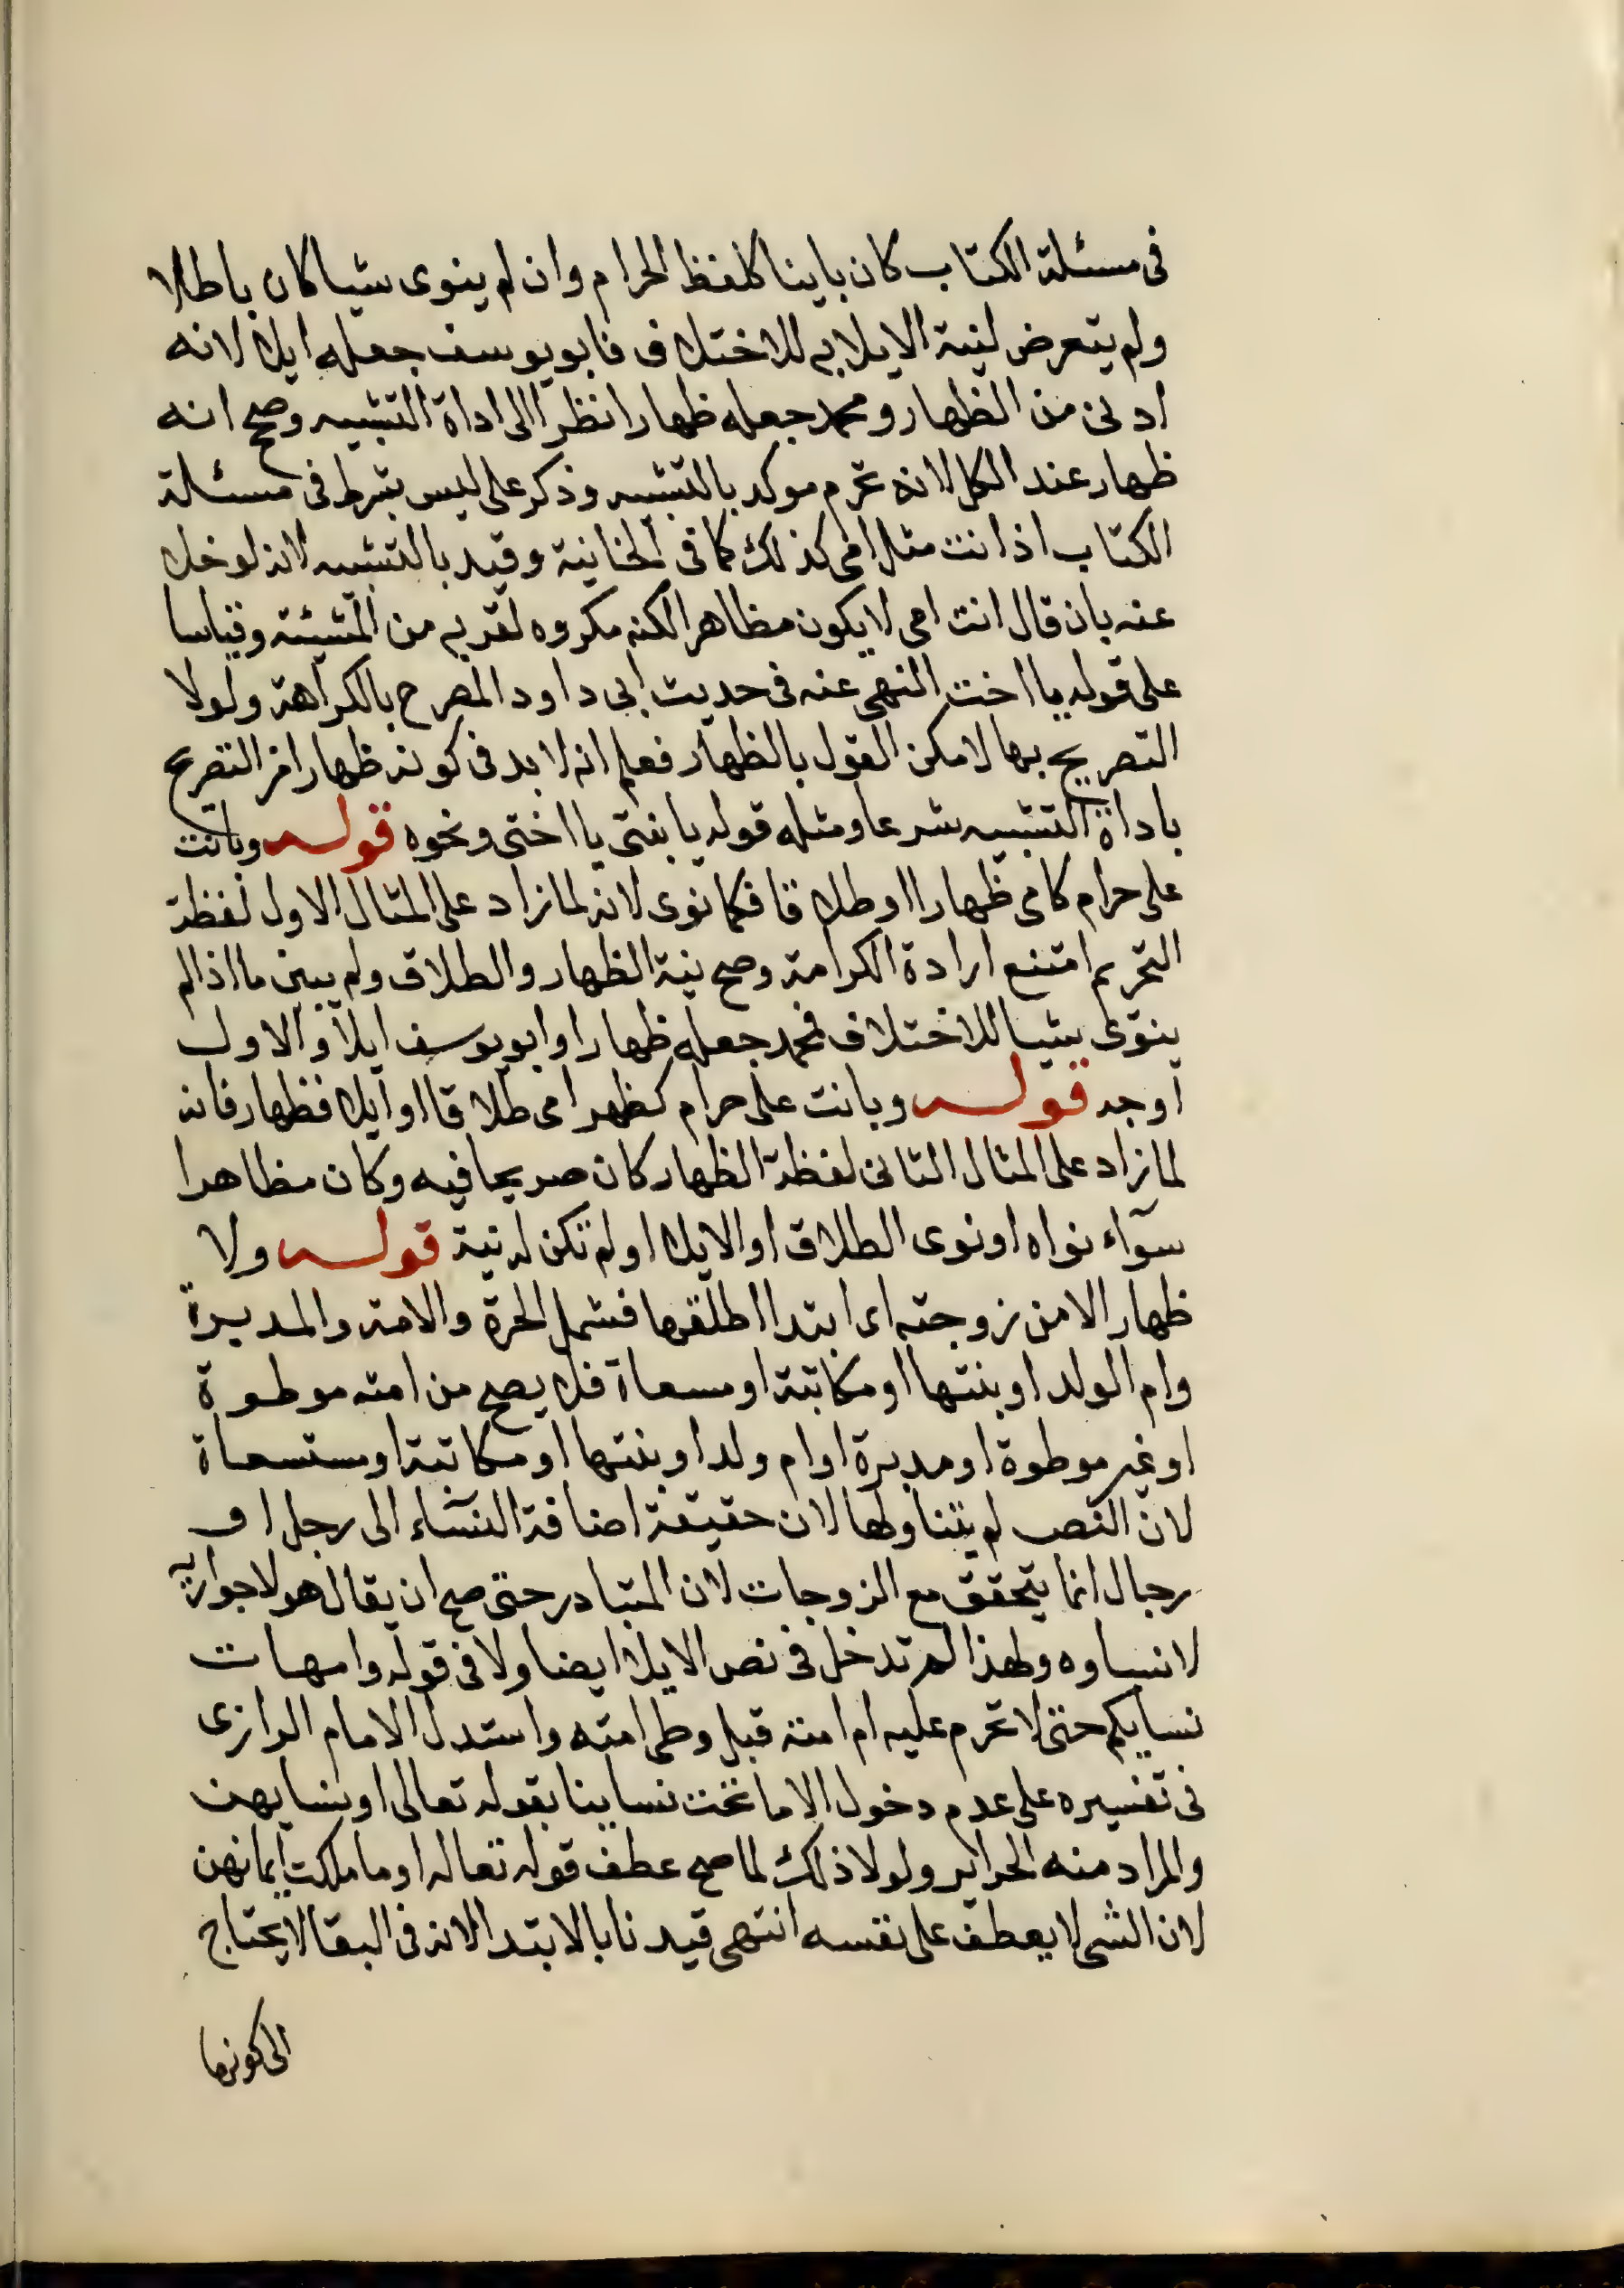 فى مسئلة الكتاب كان باينا كلفظ الحرام وان لم ينوى شيا كان باطلا
ولم يتعرض لنية الايلا به للاختلاف فابويوسف جعله ايلا لانه
ادنى من الظهار ومحمد جعله ظهارا نظرا الى اداة التشبيه وصح انه
ظهار عند الكل لانه تحرم موكد بالتشبيه وذكر على ليس بشرط فى مسئلة
الكتاب اذ انت مثل امى كذلك كما فى الخانية وقيد بالتشبيه لانه لو خلا
عنه بان قال انت امى لا يكون مظاهرا لكنه مكروه لقربه من التشبيه وقياسا
على قوله يا اخت النهى عنه فى حديث ابى داود المصرح بالكراهة ولولا
التصريح بها لامكن القول بالظهار فعلم انه لا بد فى كونه ظهارا من التصريح
باداة التشبيه شرعا ومثله قوله يا بنتى يا اختى ونحوه قوله وبانت
على حرام كامى ظهارا او طلاقا فكما نوى لانه لما زاد على المثال الاول لفظة
التحريم امتنع ارادة الكرامة وصح نية الظهار والطلاق ولم يبين ما اذا لم
ينوى شيا للاختلاف فمحمد جعله ظهارا وابويوسف ايلا والاول
اوجه قوله وبانت على حرام كظهر امى طلاقا او ايلا فظهار فانه
لما زاد على المثال الثانى لفظة الظهار كان صريحا فيه وكان مظاهرا
سوآء نواه او نوى الطلاق او الايلا او لم تكن له نية قوله ولا
ظهار الا من زوجته اى ابتدا اطلقها فشمل الحرة والامة والمدبرة
وام الولد او بنتها او مكاتبة او مسعاة فلا يصح من امته موطوة
او غير موطوة او مدبرة او ام ولد او بنتها او مكاتبة او مستسعاة
لان النص لم يتناولها لان حقيقة اضافة النسآء الى رجل او
رجال انما يتحقق مع الزوجات لان المتبادر حتى صح ان يقال هولا جواريه
لا نساوه ولهذا لم تدخل فى نص الايلا ايضا ولا فى قوله وامهات
نسايكم حتى لا تحرم عليه ام امته قبل وطى امته واستدل الامام الرازى
فى تفسيره على عدم دخول الاما تحت نساينا بقوله تعالى او نسايهن
والمراد منه الحراير ولولا ذلك لما صح عطف قوله تعالى او ما ملكت ايمانهن
لان الشى لا يعطف على نفسه انتهى قيدنا بالابتدا لانه فى البقا لا يحتاج
الى كونها